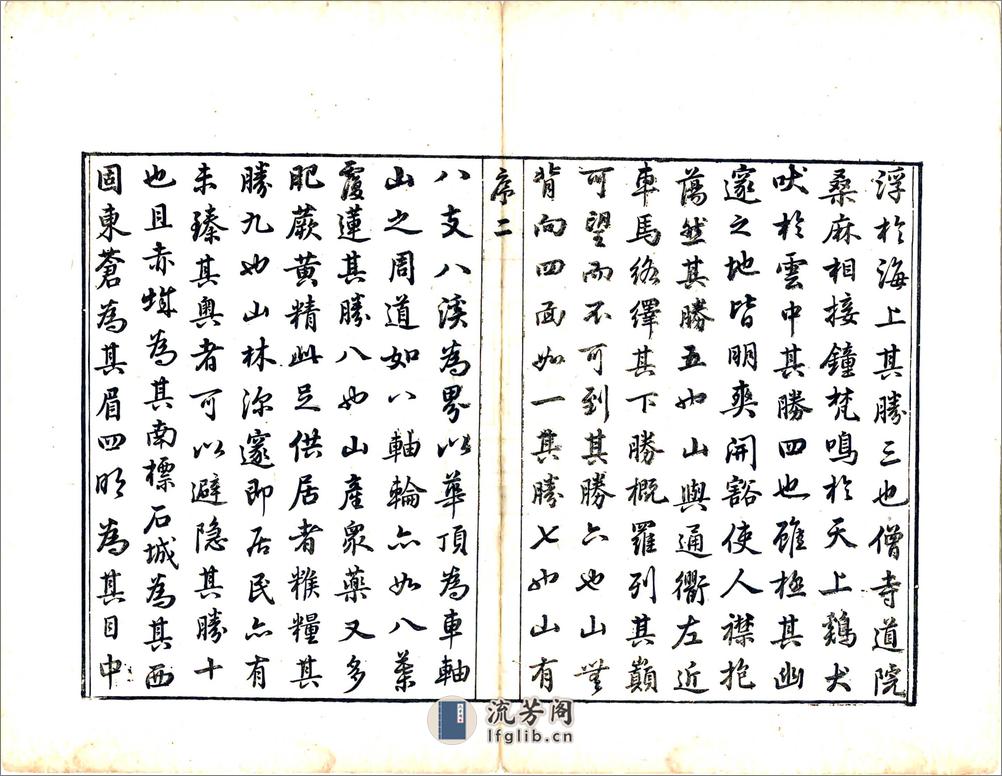 浮於海上其勝三也僧寺道院
桑麻相接鐘梵鳴於天上鷄犬
吠於雲中其勝四也雖極其幽
邃之地皆明爽開豁使人襟抱
蕩然其勝五也山輿通衢左近
車馬絡繹其下勝概羅列其巔
可望而不可到其勝六也山無
背向四面如一其勝七也山有
序二
八支八溪為界以華頂為車軸
山之周道如八軸輪亦如八葉
覆蓮其勝八也山產眾藥又多
肥蕨黃精此足供居者糇糧其
勝九也山林深邃即居民亦有
未臻其奧者可以避隐其勝十
也且赤城為其南標石城為其西
固東蒼為其眉四明為其目中
流芳阁
lfglib.cn